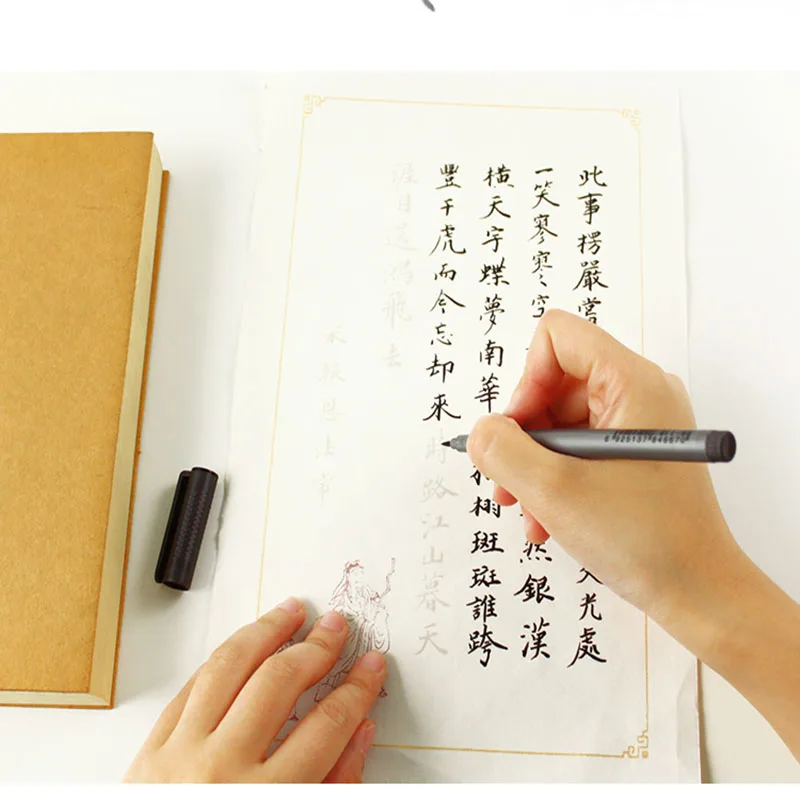 此事楞嚴嘗 光處
一笑寥寥空 然銀漢
橫天宇蝶夢南華 栩斑斑誰跨
豐干虎而今忘却來時路江山暮天
涯目送鴻飛去
宋報恩法常